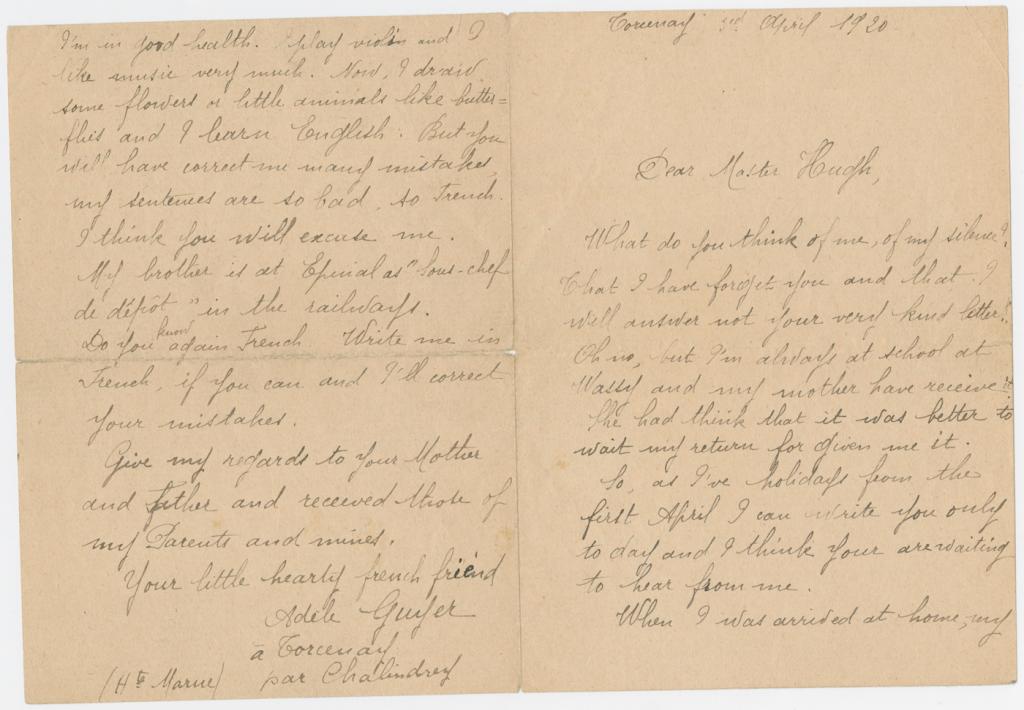 Torcenay 3rd April 1920
Dear Master Hugh,
What do you think of me, of my silence?
That I have forget you and that I
will answer not your very kind letter?
Oh no, but I'm always at school at
Wassy and my mother have receive it
She had think that it was better to
wait my return for given me it.
So, as I've holidays from the
first April I can write you only
to day and I think your are waiting
to hear from me.
When I was arrived at home, my
I'm in good health. I play violin and I
like music very much. Now, I draw
some flowers or little animals like butter=
flies and I learn English. But you
will have correct me many mistakes,
my sentences are so bad, so French.
I think you will excuse me.
My brother is at Epinal as "Sous-chef
de dépôt" in the railways.
Do you know again French. Write me in
French, if you can and I'll correct
your mistakes.
Give my regards to your Mother
and Father and received those of
my Parents and mines.
Your little hearty french friend
Adèle Guyer
à Torcenay
par Chalindrey
(Hte Marne)